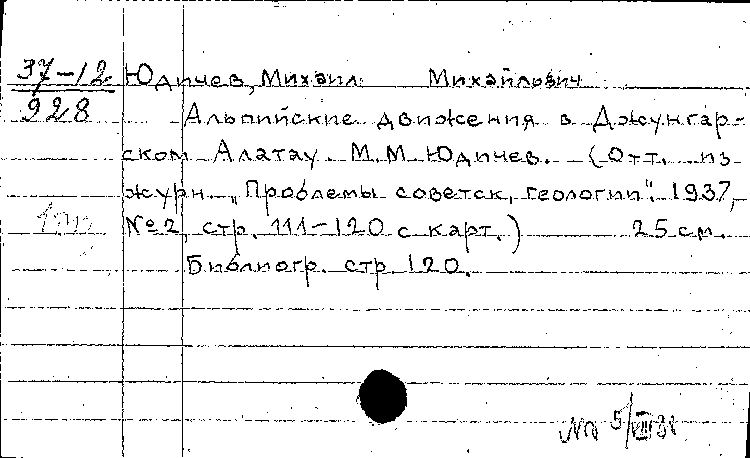 37-12
928
Юдичев, Михаил Михайлович
Альпийские движения в Джунгар-
ском Алатау. М.М. Юдичев. (Отт. из
журн. „Проблемы советск. геологии". 1937,
№2, стр. 111-120 с карт.) 25 см.
Библиогр. стр. 120.
5/VIII